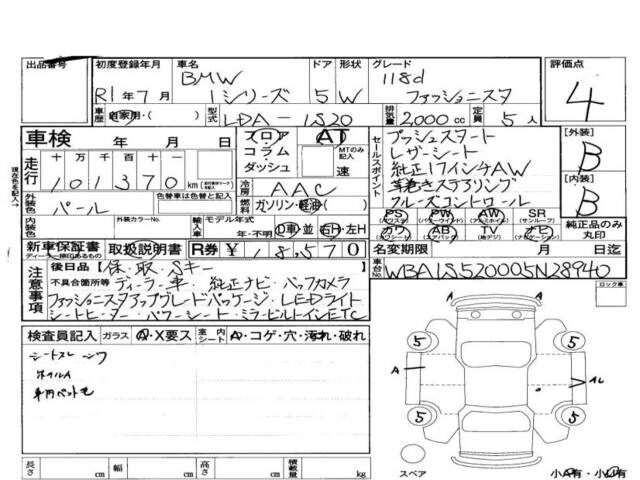 出品番号
初度登録年月 車名 ドア 形状 グレード 評価点
R1年7月 BMW 1シリーズ 5 W 118d ファッショニスタ 4
車歴 自家用・( ) 型式 LDA-1S20 排気量 2,000cc 定員 5人
車検 年 月 日
フロア コラム ダッシュ AT MTのみ記入 速
走行 十万 万 千 百 十 一
101370 km
冷房 AAC
燃料 ガソリン・軽油( )
外装色 パール 色替車は色替と記入
内装色 外装カラーNo. 輸入車 モデル年式 年・不明 D車・並 右H・左H
セールスポイント
プッシュスタート
レザーシート
純正17インチAW
革巻きステアリング
クルーズコントロール
PS (パワステ) PW (パワーウインド) AW (アルミホイル) SR (サンルーフ)
カワ AB (エアバック) TV (地デジ) ナビ
純正品のみ丸印
[外装] B
[内装] B
現在色を記入→
新車保証書 ディーラー捺印あるもの 取扱説明書 R券 ¥18,570
名変期限 月 日迄
車台No. WBA1S520005N28940
ロック車
注意事項
後日品 保、取、Sキー
不具合箇所等 ディーラー車、純正ナビ・バックカメラ
ファッショニスタアップグレードパッケージ・LEDライト
シートヒーター・パワーシート・ミラービルトインETC
検査員記入 ガラス A・X要ス 室内 シート A・コゲ・穴・汚れ・破れ
シートスレ シワ
ホイルA
5 5
A A1
5 5
スペア 小A有・小U有
長さ cm 幅 cm 高さ cm 積載量 kg